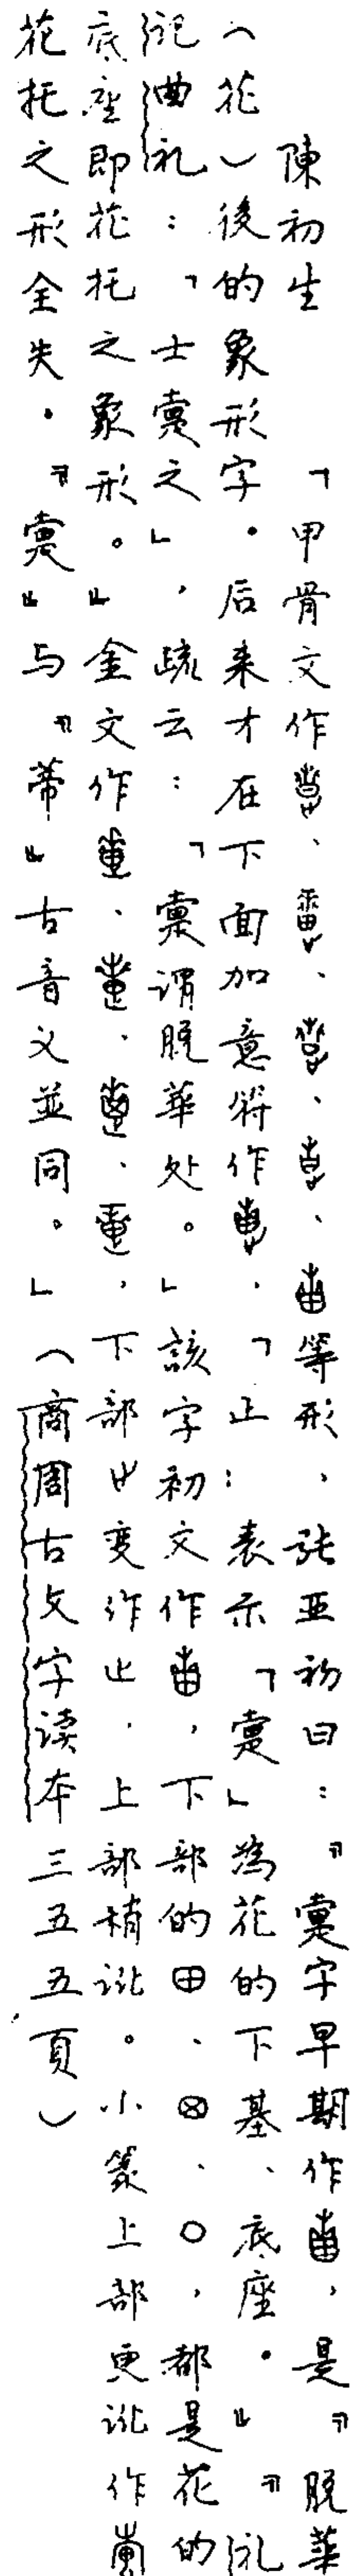 陳初生　「甲骨文作、、、、等形，張亞初曰：『疐字早期作，是『脫華
（花）後的象形字。后来才在下面加意符作，「止：表示「疐」為花的下基、底座。』『礼
記曲礼：「士疐之」，疏云：「疐謂脫華处。」該字初文作，下部的田、⊗、○，都是花的
底座即花托之象形。』金文作、、、，下部屮变作止，上部稍訛。小篆上部更訛作
花托之形全失。『疐』与『蒂』古音义並同。」（商周古文字读本三五五頁）